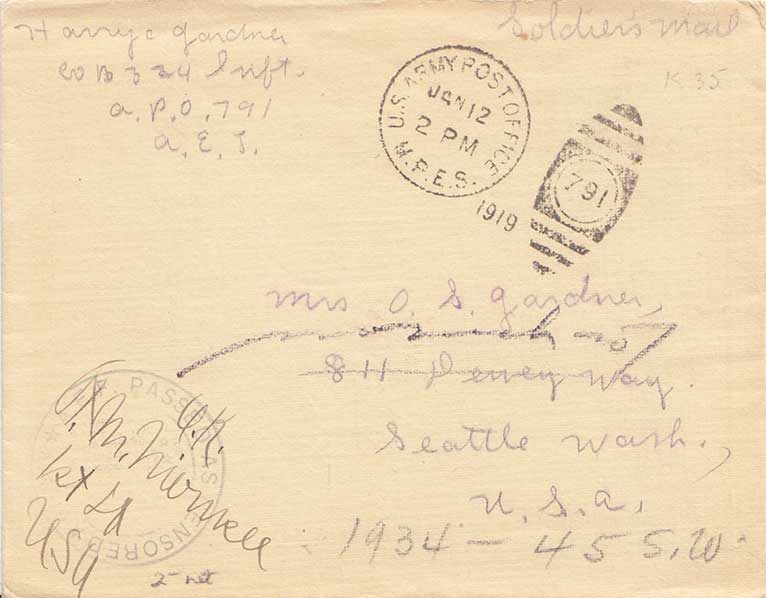 Harry C Gardner
Co B 334 Inft.
A.P.O. 791
A.E.F.
Soldier's Mail
K 35
U.S. ARMY POST OFFICE
JAN 12
2 PM
M.P.E.S.
1919
791
Mrs O. S. Gardner,
811 Dewey Way.
Seattle Wash.,
U.S.A.
1934 - 45 S.W.
PASSED AS CENSORED
O.K.
1st Lt
USA
2- net